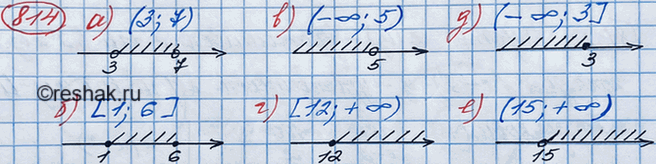 814 а) (3; 7) в) (-∞; 5) д) (-∞; 3]
3 7 5 3
©reshak.ru
б) [1; 6] г) [12; +∞) е) (15; +∞)
1 6 12 15